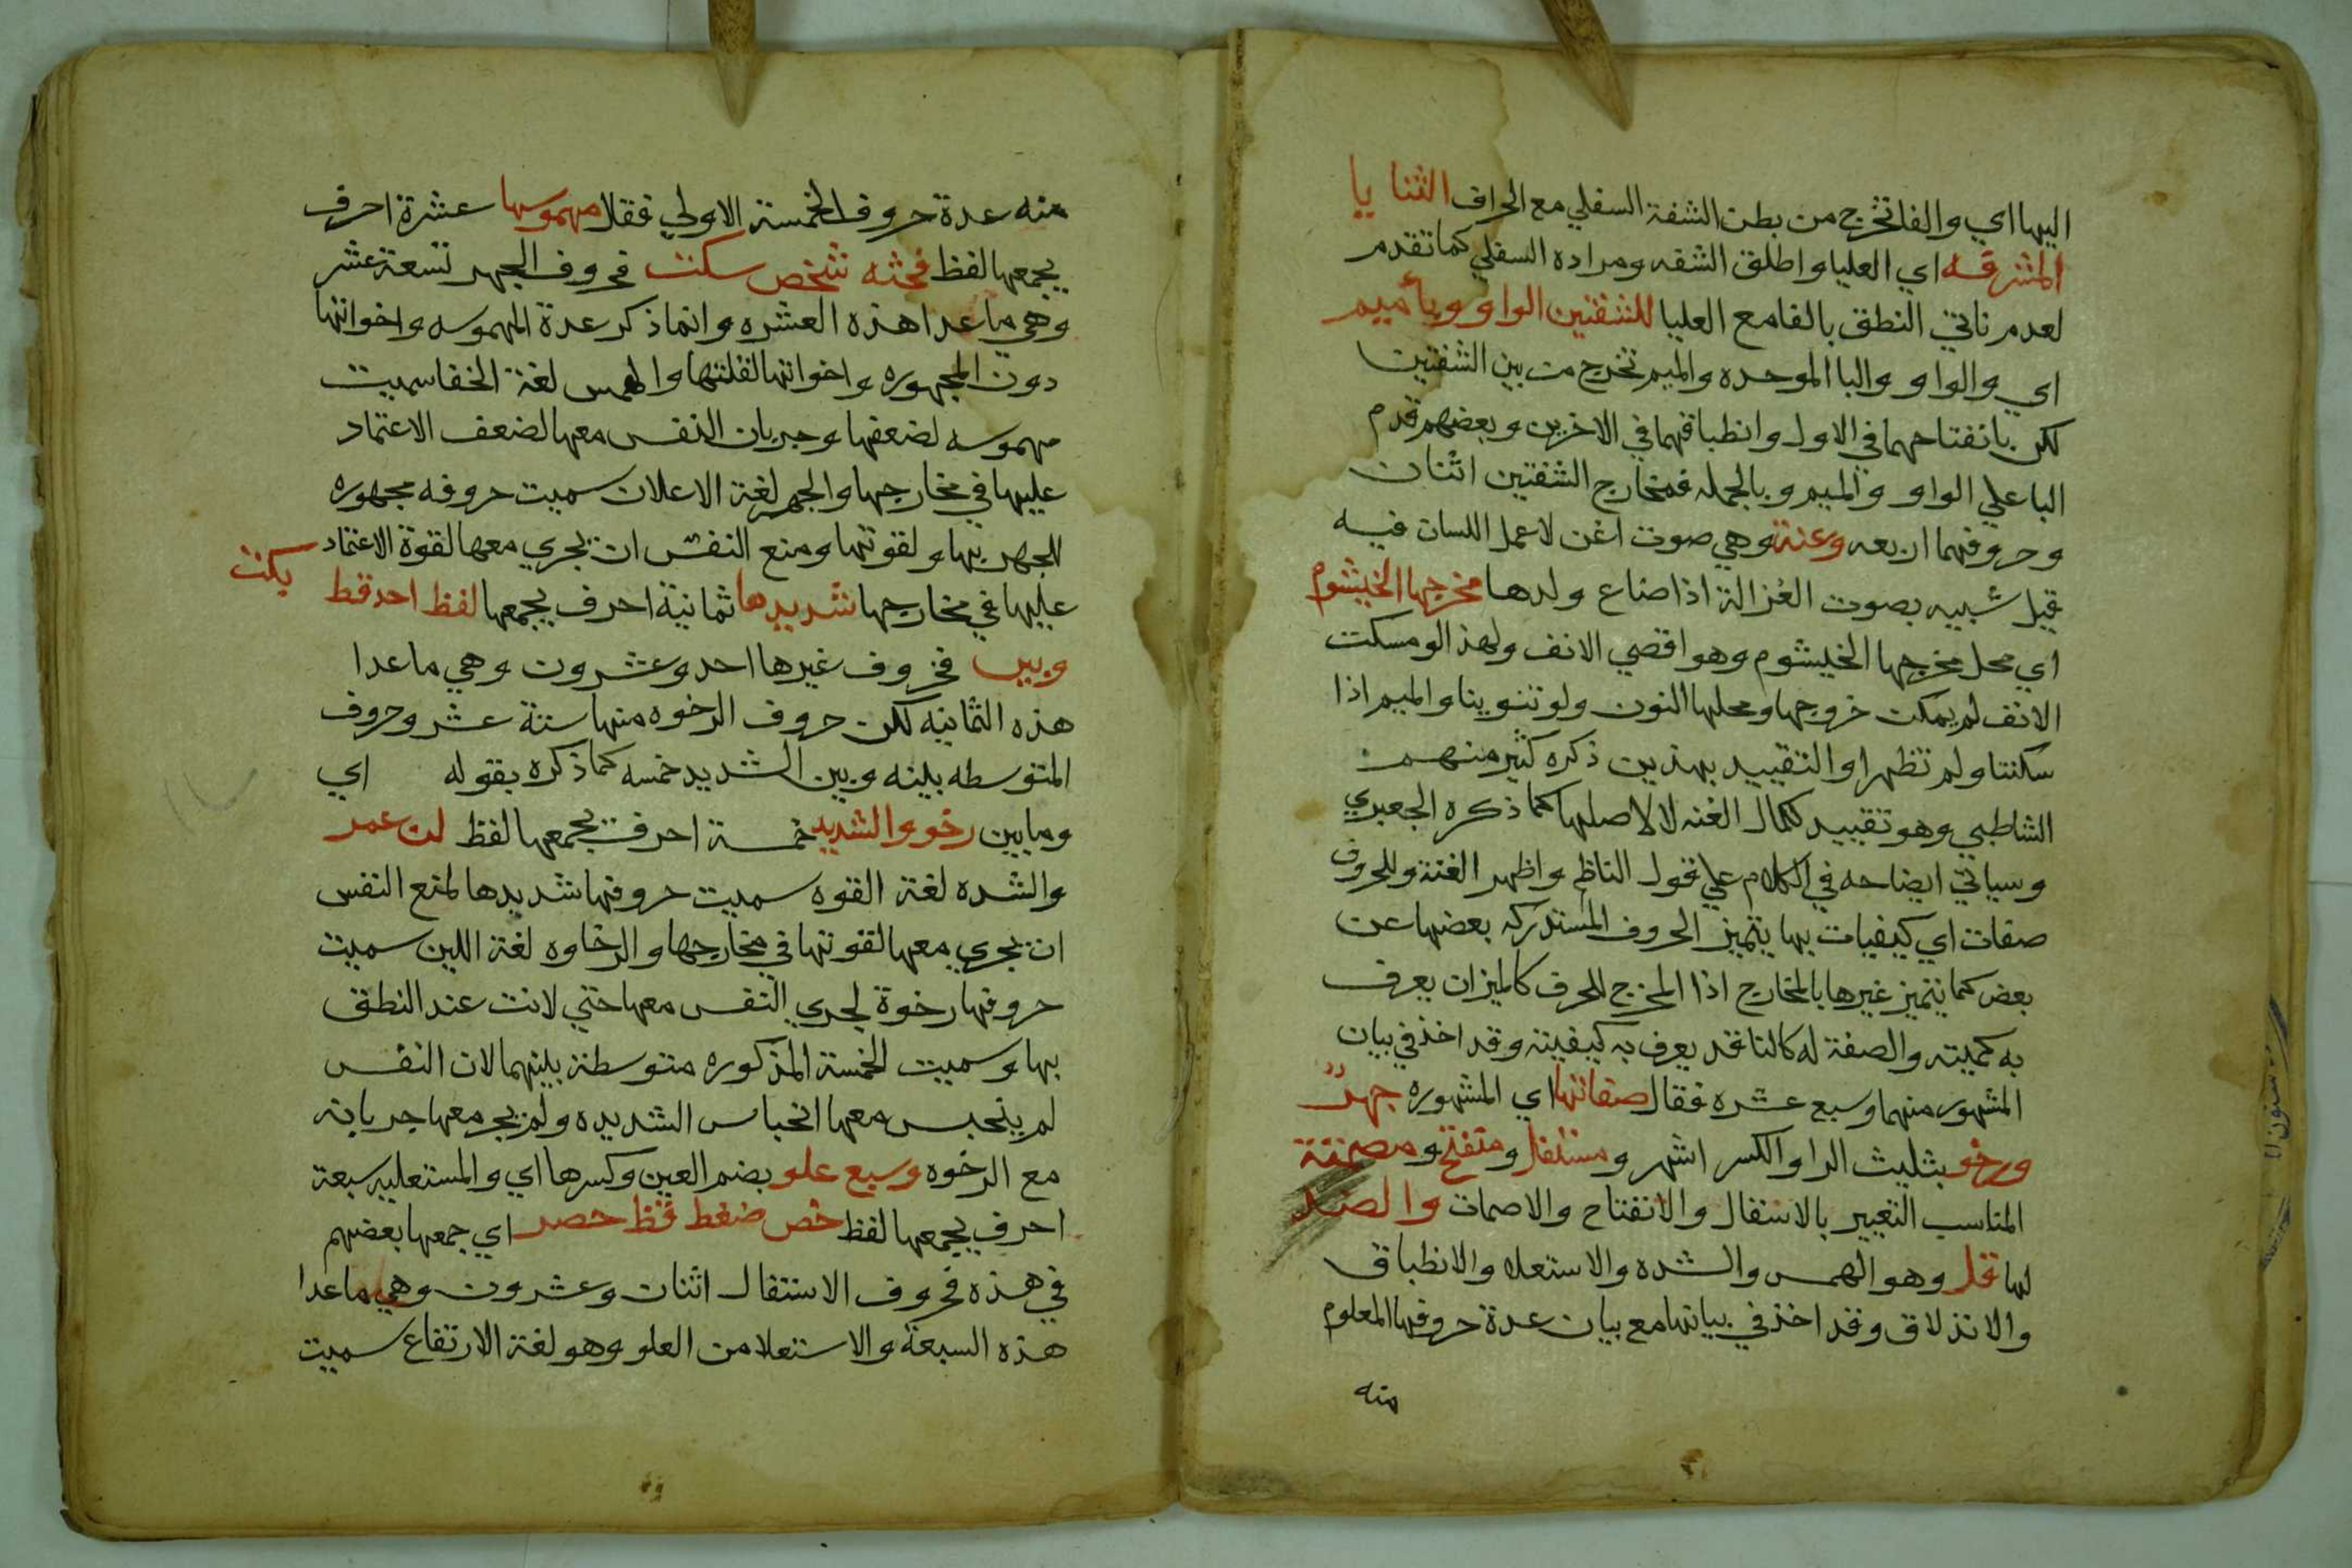 اليها اي والفا تخرج من بطن الشفة السفلي مع اطراف الثنايا
المشرفه اي العليا واطلق الشفه ومراده السفلي كما تقدم
لعدم تاتي النطق بالفا مع العليا للشفتين الواو وبا ميم
اي والواو والبا الموحده والميم تخرج من بين الشفتين
لكن بانفتاحهما في الاول وانطباقهما في الاخرين وبعضهم قدم
البا علي الواو والميم وبالجمله فمخارج الشفتين اثنان
وحروفهما اربعه وغنة وهي صوت اغن لا عمل اللسان فيه
قيل شبيه بصوت الغزالة اذا ضاع ولدها مخرجها الخيشوم
اي محل مخرجها الخيشوم وهو اقصي الانف ولهذا لو مسكت
الانف لم يمكن خروجها ومحلها النون ولو تنوينا والميم اذا
سكنتا ولم تظهرا والتقييد بهذين ذكره كثير منهم
الشاطبي وهو تقييد لكمال الغنه لا لاصلها كما ذكره الجعبري
وسياتي ايضاحه في الكلام علي قول الناظم واظهر الغنة وللحروف
صفات اي كيفيات بها يتميز الحروف المستدركه بعضها عن
بعض كما يتميز غيرها بالمخارج اذا المخرج للحرف كالميزان يعرف
به كميته والصفة له كالناقد يعرف به كيفيته وقد اخذ في بيان
المشهور منهما وسبع عشره فقال صفاتها اي المشهوره جهر
ورخو بتثليث الرا والكسر اشهر ومستفل ومنفتح ومصمتة
المناسب التعبير بالاستفال والانفتاح والاصمات والضد
لها قل وهو الهمس والشده والاستعلا والانطباق
والانذلاق وقد اخذ في بيانها مع بيان عدة حروفها المعلوم
منه
منه عدة حروف الخمسة الاولي فقال مهموسها عشرة احرف
يجمعها لفظ فحثه شخص سكت فحروف الجهر تسعة عشر
وهي ما عدا هذه العشره وانما ذكر عدة المهموسه واخواتها
دون المجهوره واخواتها لقلتها والهمس لغة الخفا سميت
مهموسه لضعفها وجريان النفس معها لضعف الاعتماد
عليها في مخارجها والجهر لغة الاعلان سميت حروفه مجهوره
للجهر بها ولقوتها ومنع النفس ان يجري معها لقوة الاعتماد
عليها في مخارجها شديدها ثمانية احرف يجمعها لفظ احد قط بكت
وبين فحروف غيرها احد وعشرون وهي ما عدا
هذه الثمانيه لكن حروف الرخوه منها ستة عشر وحروف
المتوسطه بينه وبين الشديد خمسه كما ذكره بقوله اي
وما بين رخو والشديد خمسة احرف يجمعها لفظ لن عمر
والشده لغة القوه سميت حروفها شديدها لمنع النفس
ان يجري معها لقوتها في مخارجها والرخاوه لغة اللين سميت
حروفها رخوة لجري النفس معها حتي لانت عند النطق
بها وسميت الخمسة المذكوره متوسطة بينهما لان النفس
لم ينحبس معها انحباس الشديده ولم يجر معها جريانه
مع الرخوه وسبع علو بضم العين وكسرها اي والمستعليه سبعة
احرف يجمعها لفظ خص ضغط قظ حصر اي جمعها بعضهم
في هذه فحروف الاستفال اثنان وعشرون وهي ما عدا
هذه السبعة والاستعلا من العلو وهو لغة الارتفاع سميت